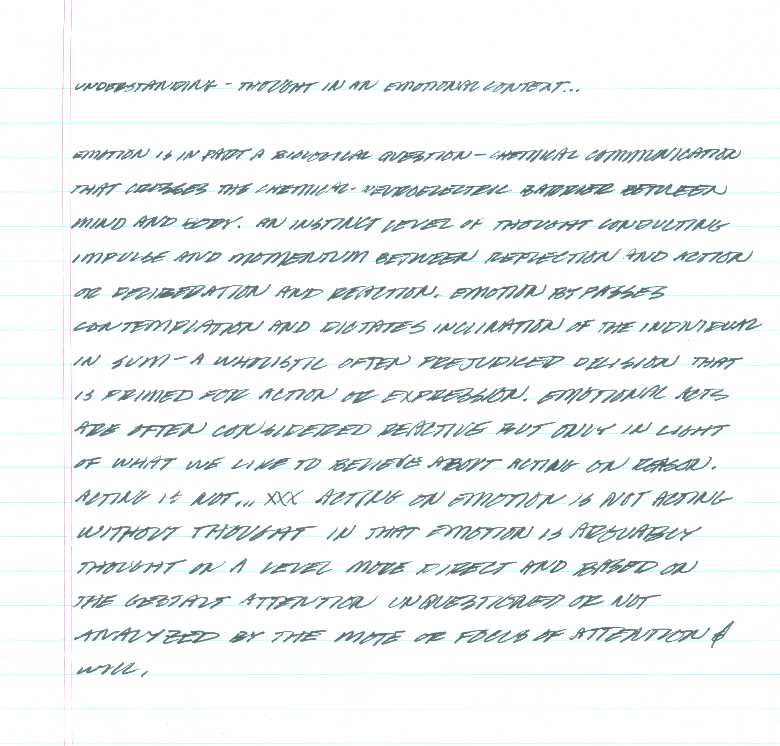 UNDERSTANDING - THOUGHT IN AN EMOTIONAL CONTEXT...
EMOTION IS IN PART A BIOLOGICAL QUESTION - CHEMICAL COMMUNICATION
THAT CROSSES THE CHEMICAL-NEUROELECTRIC BARRIER BETWEEN
MIND AND BODY. AN INSTINCT LEVEL OF THOUGHT CONDUCTING
IMPULSE AND MOMENTUM BETWEEN REFLECTION AND ACTION
OR DELIBERATION AND REACTION. EMOTION BYPASSES
CONTEMPLATION AND DICTATES INCLINATION OF THE INDIVIDUAL
IN SUM - A WHOLISTIC OFTEN PREJUDICED DECISION THAT
IS PRIMED FOR ACTION OR EXPRESSION. EMOTIONAL ACTS
ARE OFTEN CONSIDERED REACTIVE BUT ONLY IN LIGHT
OF WHAT WE LIKE TO BELIEVE ABOUT ACTING ON REASON.
ACTING IS NOT... XXX ACTING ON EMOTION IS NOT ACTING
WITHOUT THOUGHT IN THAT EMOTION IS ARGUABLY
THOUGHT ON A LEVEL MORE DIRECT AND BASED ON
THE GESTALT ATTENTION UNQUESTIONED OR NOT
ANALYZED BY THE MOTE OR FOCUS OF ATTENTION &
WILL.